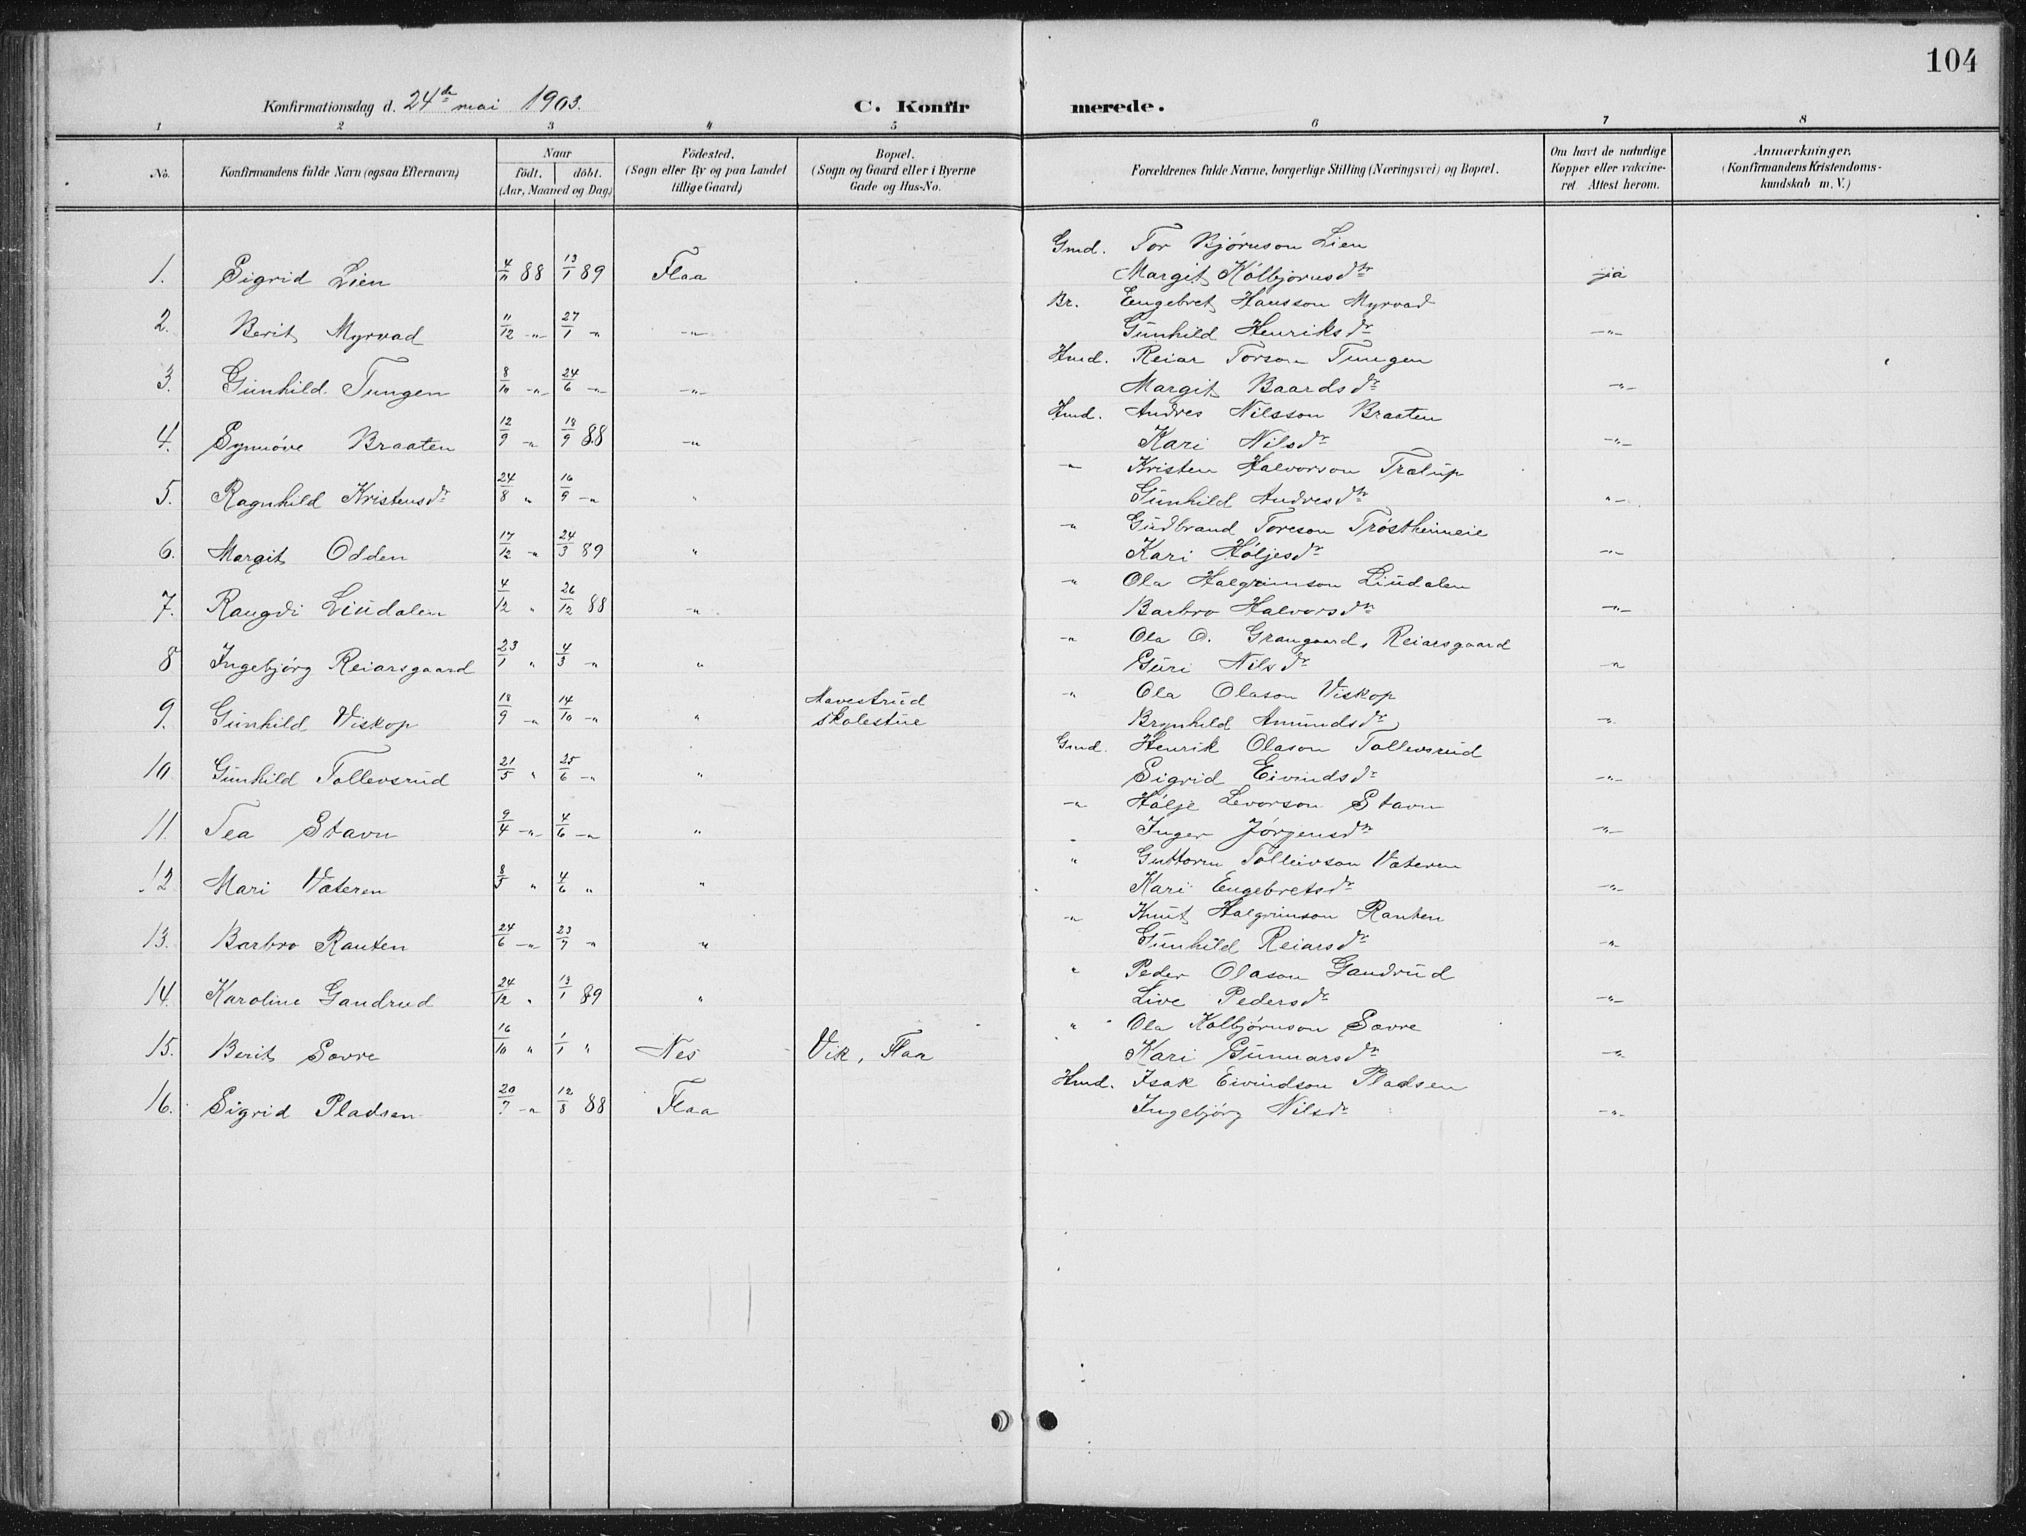 104
Konfirmationsdag d. 24de mai 1903.
C. Konfirmerede.
1 2 3 4 5 6 7 8
No. Konfirmandens fulde Navn (ogsaa Efternavn) Naar födt. döbt. (Aar, Maaned og Dag) Födested. (Sogn eller By og paa Landet tillige Gaard) Bopæl. (Sogn og Gaard eller i Byerne Gade og Hus-No. Forældrenes fulde Navne, borgerlige Stilling (Næringsvei) og Bopæl. Om havt de naturlige Kopper eller vakcineret. Attest herom. Anmærkninger. (Konfirmandens Kristendomskundskab m. V.)
Gmd. Tor Bjørnson Lien
1. Sigrid Lien 4/11 88 13/1 89 Flaa Margit Kolbjørnsdtr ja
Br. Engebret Hansson Myrvad
2. Berit Myrvad 11/12 -"- 27/1 " -"- Gunhild Henriksdr -"-
Hmd. Reiar Torson Tungen
3. Gunhild Tungen 8/10 -"- 24/6 -"- -"- Margit Baardsdr -"-
Hmd. Andres Nilsson Braaten
4. Synnøve Braaten 12/9 -"- 18/9 88 -"- Kari Nilsdr -"-
-"- Kristen Halvorson Trælup
5. Ragnhild Kristensdr 24/8 " 16/9 -"- " Gunhild Andresdtr "-
-"- Gudbrand Toreson Trøstheimeie
6. Margit Odden 17/12 -"- 24/3 89 " Kari Høljesdr -"-
" Ola Halgrimson Liudalen
7. Rangdi Liudalen 4/12 " 26/12 88 -"- Barbro Halvorsdtr -"-
-"- Ola O. Grangaard, Reiarsgaard
8 Ingebjørg Reiarsgaard 23/1 " 4/3 -"- " Guri Nilsdr -"-
" Ola Olason Viskop
9. Gunhild Viskop 18/9 -"- 14/10 -"- " Havestrud skolestue Brynhild Amundsdr -"-
Gmd. Henrik Olason Tollevsrud
10 Gunhild Tollevsrud 21/5 " 25/6 -"- " Sigrid Eivindsdr -"-
-"- Hølje Levorson Stavn
11. Tea Stavn 9/4 -"- 4/6 -"- " Inger Jørgensdtr -"-
" Guttorm Tolleivson Væteren
12 Mari Væteren 8/5 " 4/6 " " Kari Engebretsdr -"-
-"- Knut Halgrimson Ranten
13. Barbro Ranten 24/6 -"- 23/7 " " Gunhild Reiarsdr -"-
" Peder Olason Gandrud
14. Karoline Gandrud 24/12 " 13/1 89 " Live Pedersdr -"-
" Ola Kolbjørnson Sævre
15. Berit Sævre 16/10 " 1/1 " Nes Vik, Flaa Kari Gunnarsdr -"-
Hmd. Isak Eivindson Pladsen
16. Sigrid Pladsen 20/7 -"- 12/8 88 Flaa Ingebjørg Nilsdr -"-